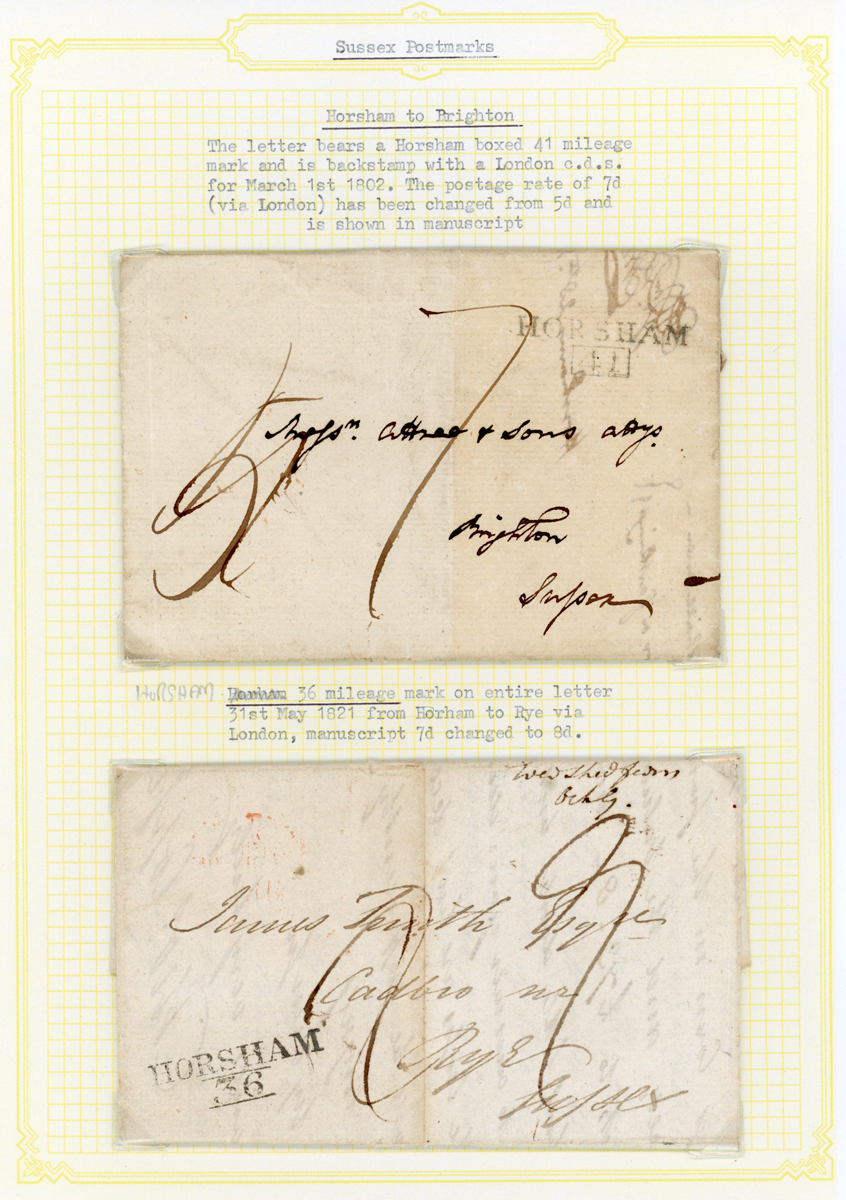 Sussex Postmarks
Horsham to Brighton
The letter bears a Horsham boxed 41 mileage
mark and is backstamp with a London c.d.s.
for March 1st 1802. The postage rate of 7d
(via London) has been changed from 5d and
is shown in manuscript
HORSHAM
41
5 7
Messrs. Attree & Sons attys.
Brighton
Sussex
HORSHAM Horham 36 mileage mark on entire letter
31st May 1821 from Horham to Rye via
London, manuscript 7d changed to 8d.
James Smith Esqre
Cadbro nr
Rye
Sussex
HORSHAM
36